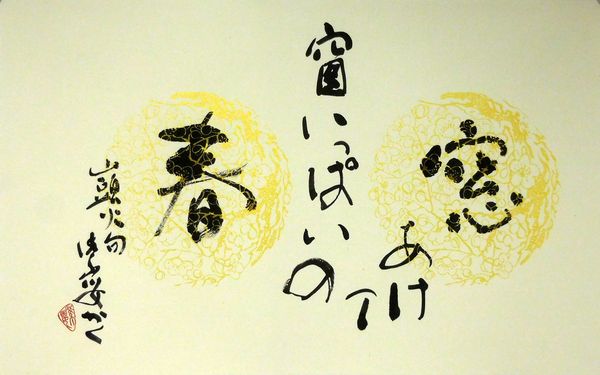 窓
あけて
窗いっぱいの
春
山頭火句
かく